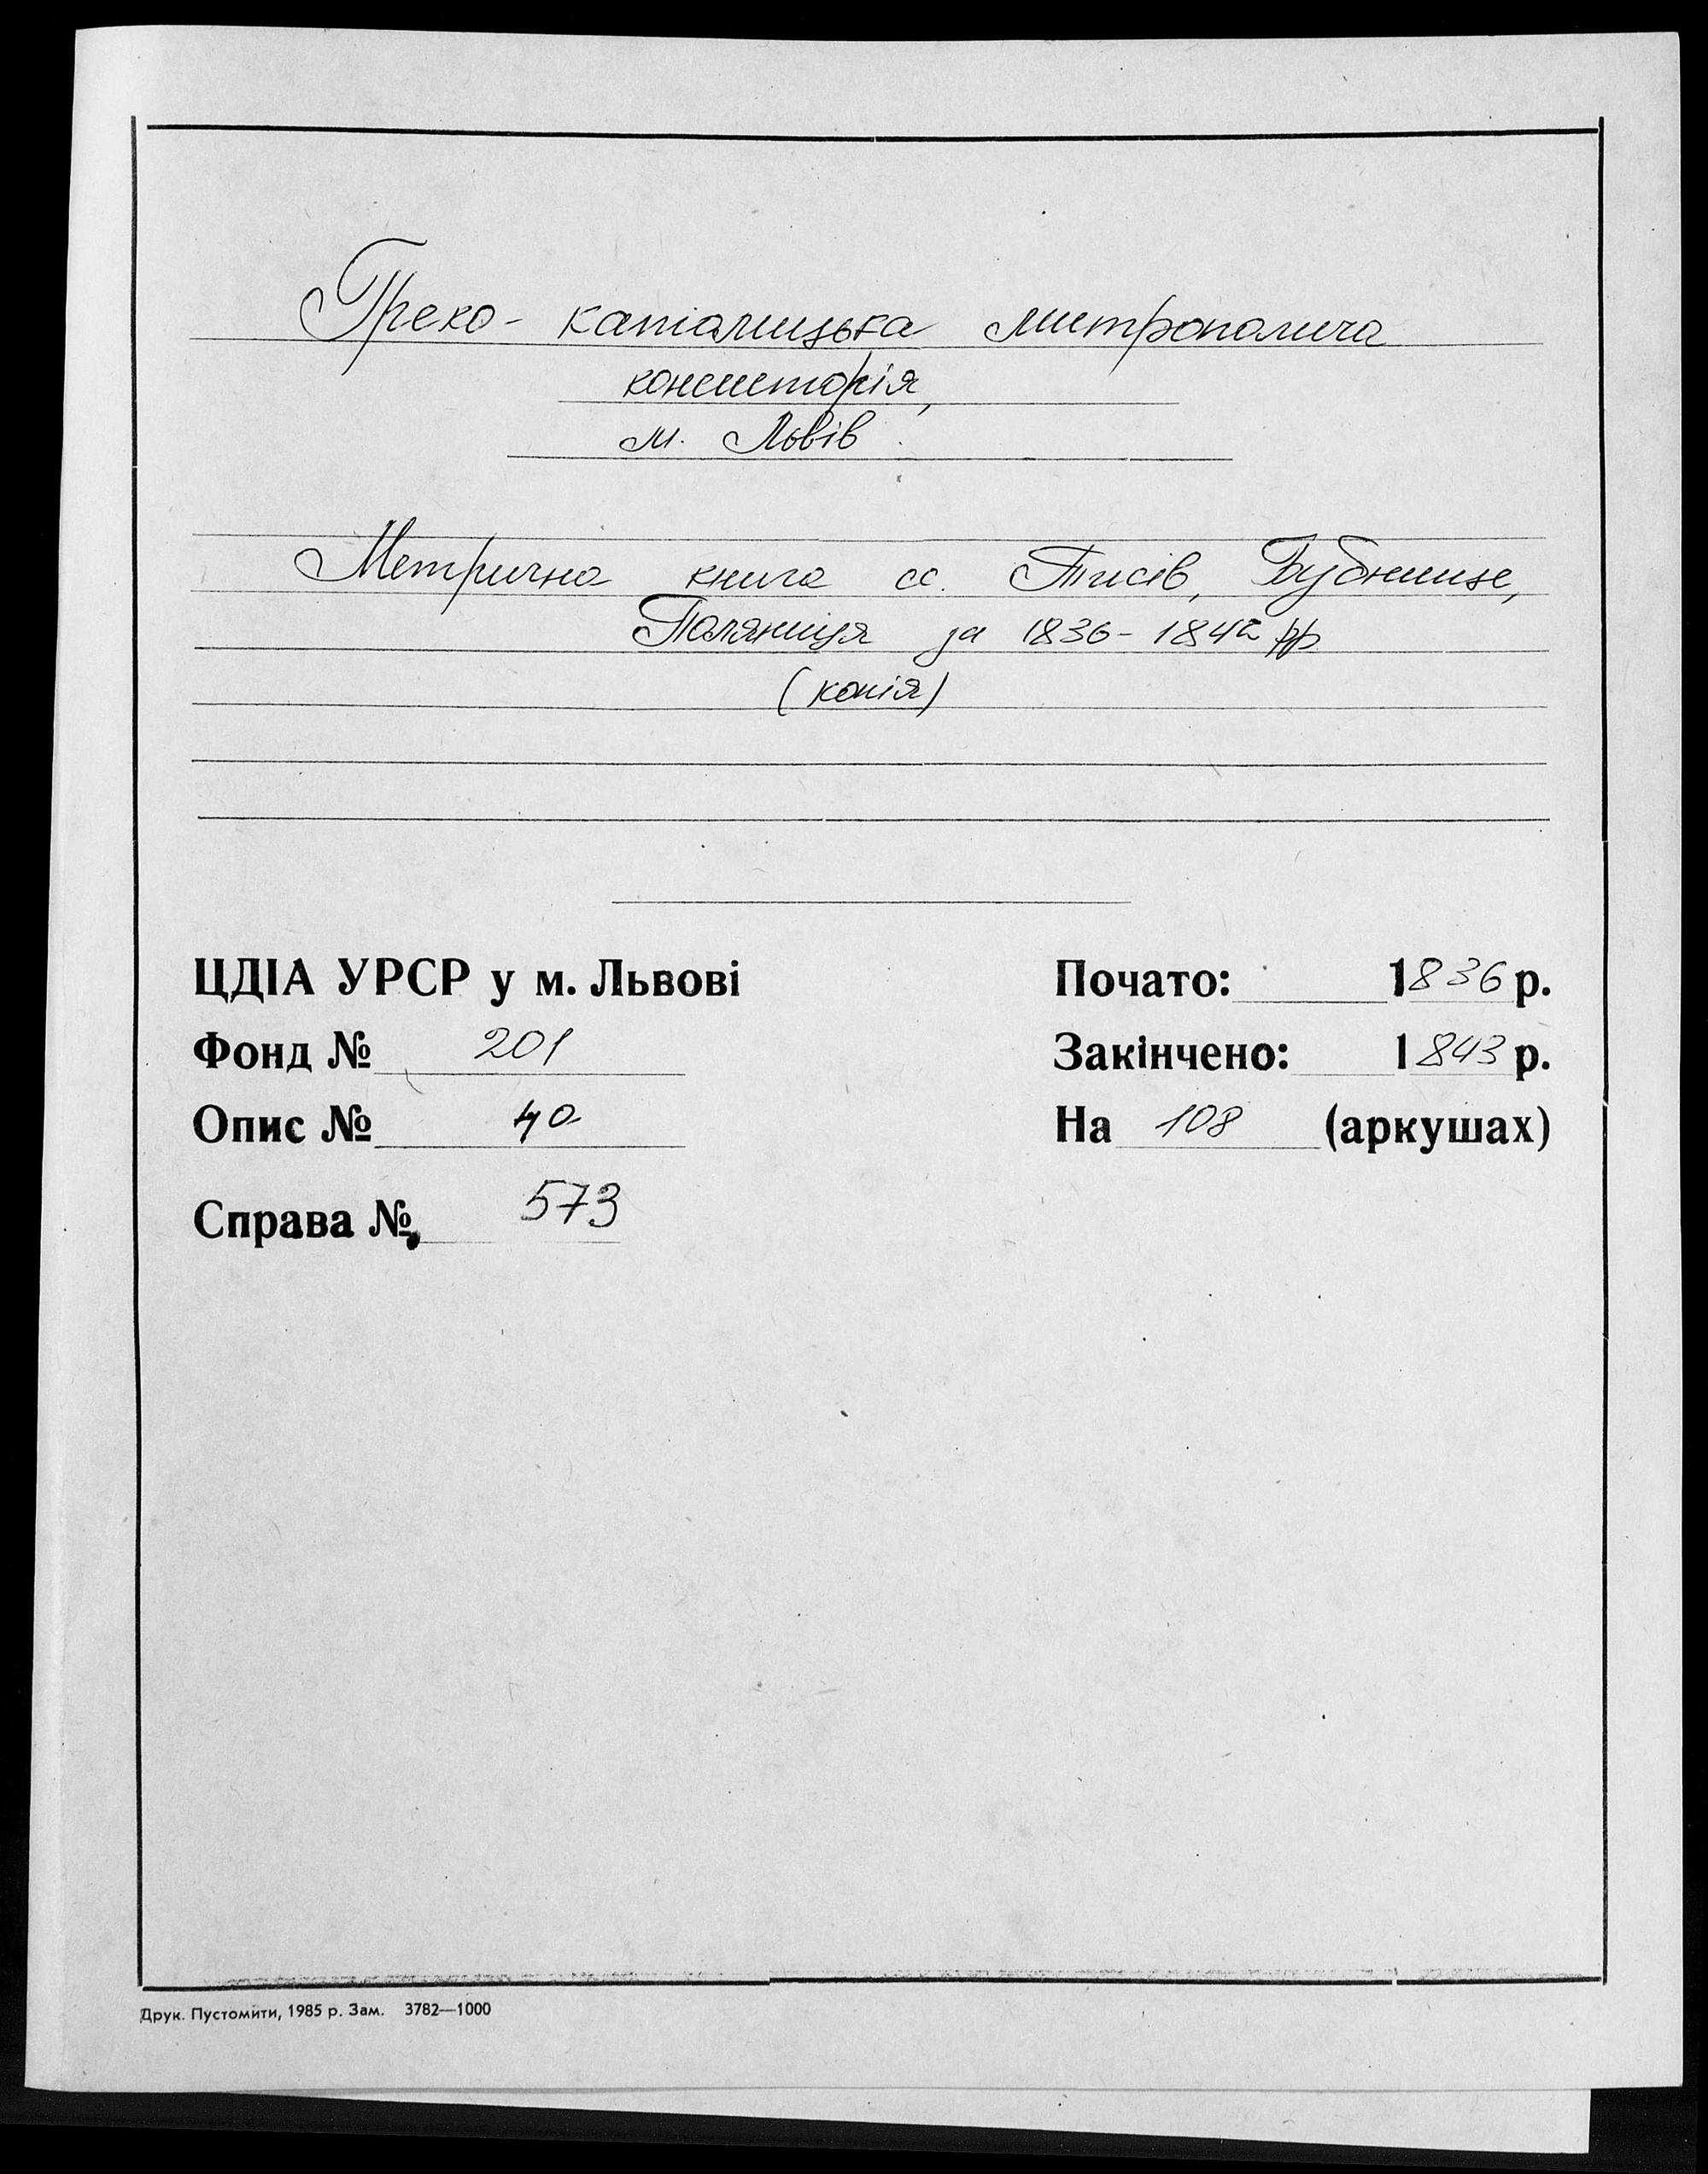 Греко-католицька митрополича
консисторія,
м. Львів.
Метрична книга сс. Тисів, Бубнище,
Поляниця за 1836-1842 рр
(копія)
ЦДІА УРСР у м. Львові
Фонд № 201
Опис № 40
Справа № 573
Почато: 1836 р.
Закінчено: 1843 р.
На 108 (аркушах)
Друк. Пустомити, 1985 р. Зам. 3782—1000